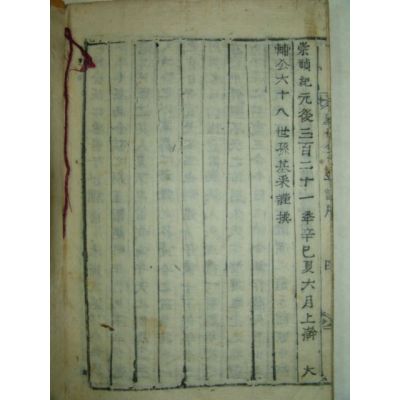 崇禎紀元後三百二十一秊辛巳夏六月上澣 大
輔公六十八世孫基采謹撰